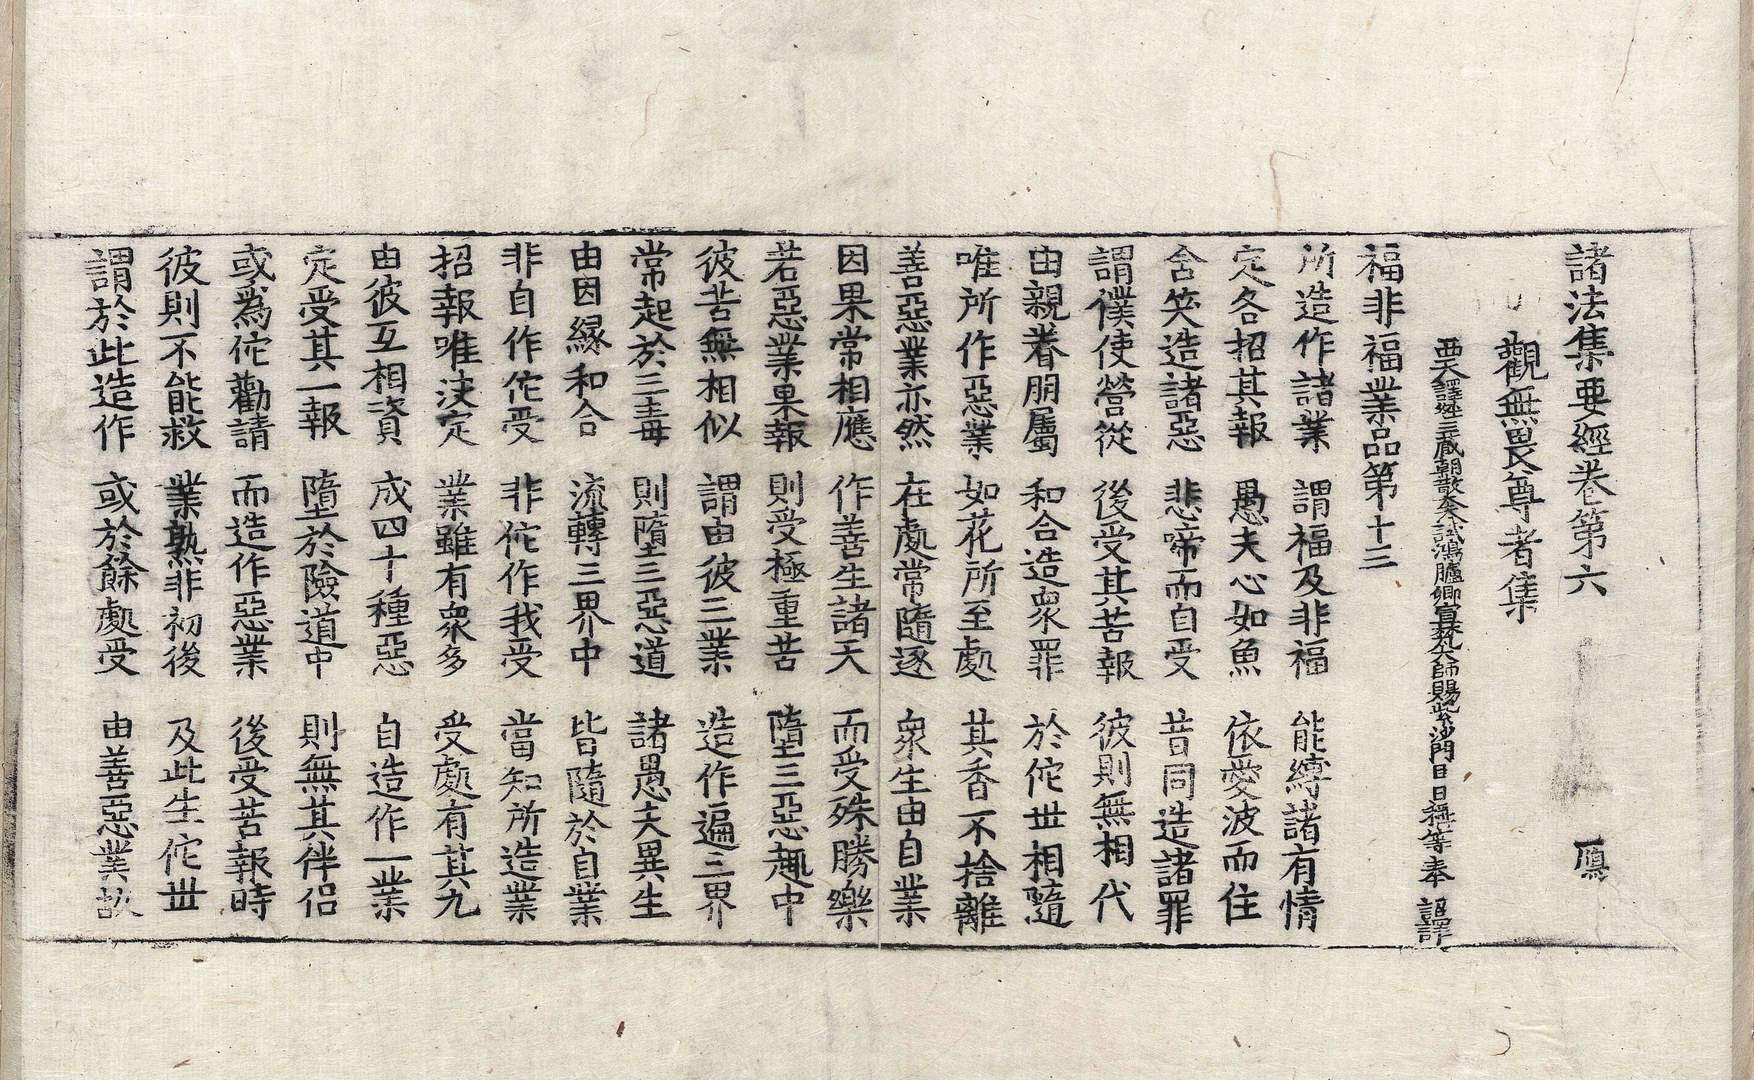 諸法集要經卷第六 鴈
觀無畏尊者集
西天譯經三藏朝散大夫試鴻臚卿宣梵大師賜紫沙門臣日稱等奉 詔譯
福非福業品第十三
所造作諸業 謂福及非福 能縛諸有情
定各招其報 愚夫心如魚 依愛波而住
含笑造諸惡 悲啼而自受 昔同造諸罪
謂僕使營從 後受其苦報 彼則無相代
由親眷朋屬 和合造衆罪 於佗世相隨
唯所作惡業 如花所至處 其香不捨離
善惡業亦然 在處常隨逐 衆生由自業
因果常相應 作善生諸天 而受殊勝樂
若惡業果報 則受極重苦 墮三惡趣中
彼苦無相似 謂由彼三業 造作遍三界
常起於三毒 則墮三惡道 諸愚夫異生
由因緣和合 流轉三界中 皆隨於自業
非自作佗受 非佗作我受 當知所造業
招報唯決定 業雖有衆多 受處有其九
由彼互相資 成四十種惡 自造作一業
定受其一報 墮於險道中 則無其伴侶
或爲佗勸請 而造作惡業 後受苦報時
彼則不能救 業熟非初後 及此生佗世
謂於此造作 或於餘處受 由善惡業故